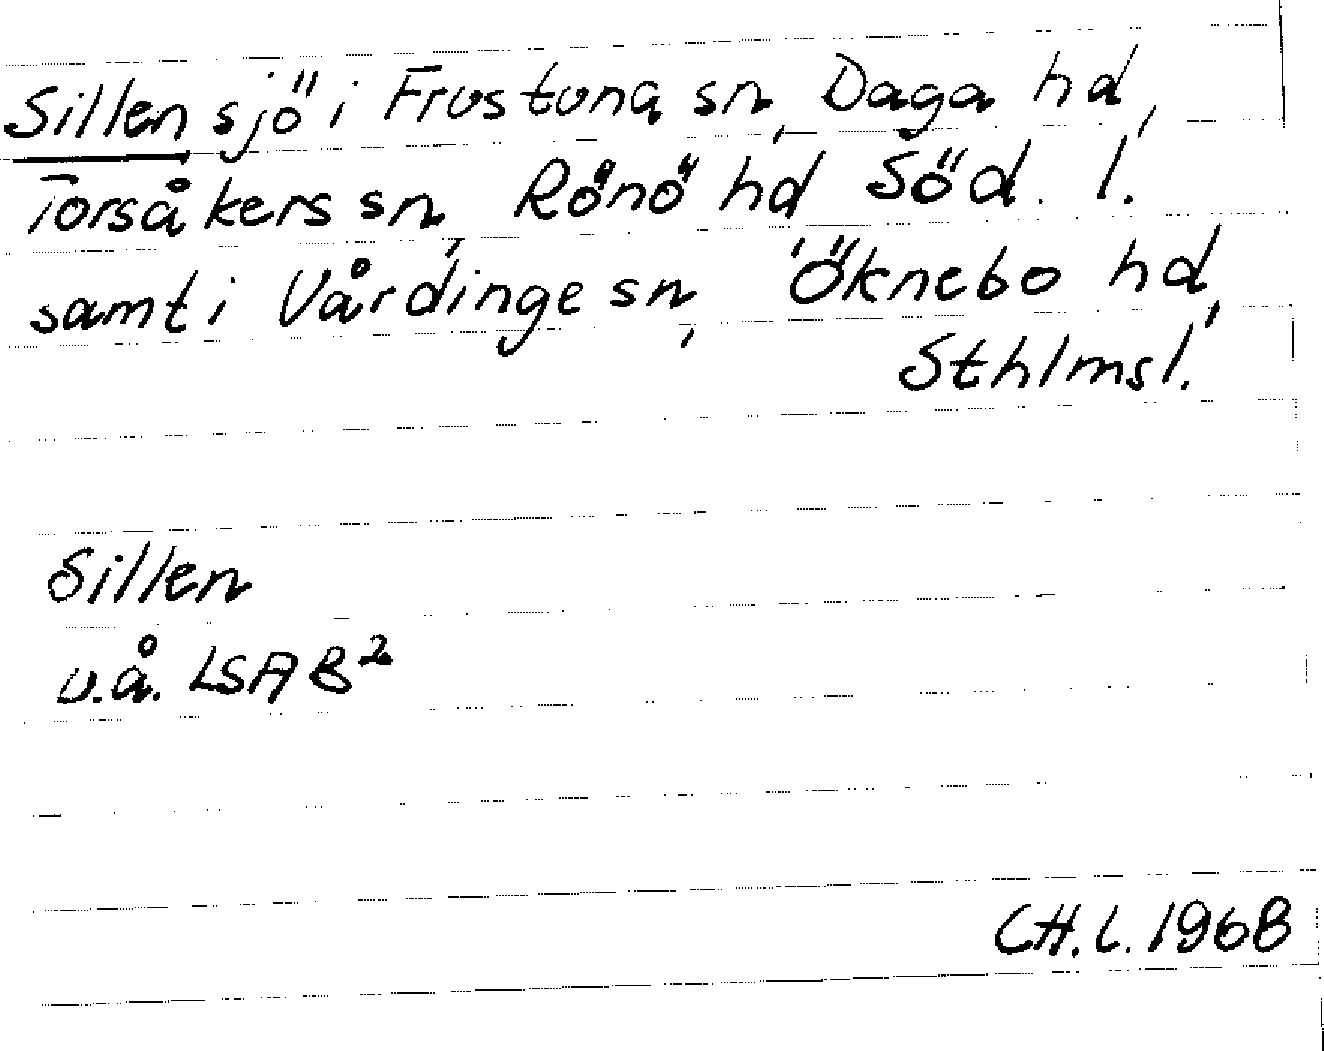 Sillen sjö i Frustuna sn, Daga hd,
Torsåkers sn, Rönö hd Söd. l.
samt i Vårdinge sn, Öknebo hd,
Sthlms l.
Sillen
u.å. LSA B²
CH. L. 1968